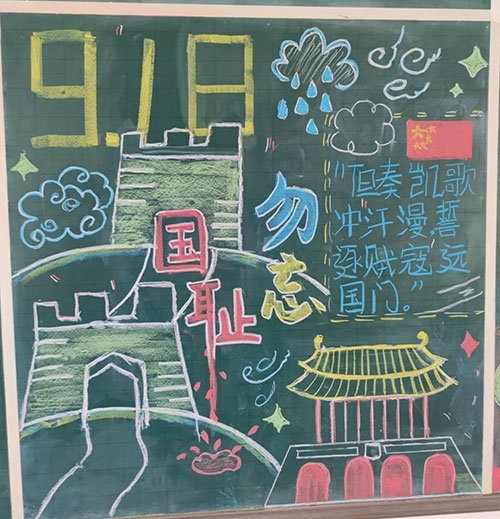 9.18
勿忘
国耻
“但奏凯歌
冲汗漫,誓
逐贼寇远
国门。”